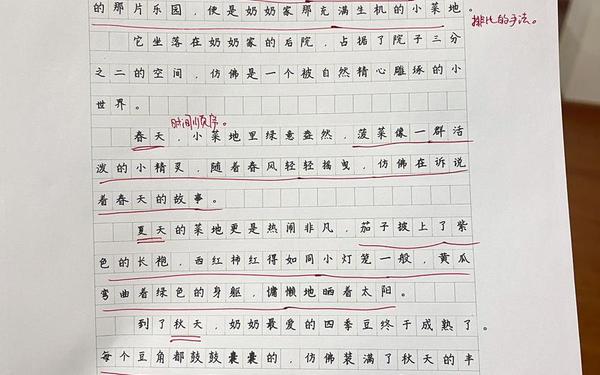 的那片乐园，便是奶奶家那充满生机的小菜地。
排比的手法。
它坐落在奶奶家的后院，占据了院子三分
之二的空间，仿佛是一个被自然精心雕琢的小
世界。
时间顺序。
春天，小菜地里绿意盎然，菠菜像一群活
泼的小精灵，随着春风轻轻摇曳，仿佛在诉说
着春天的故事。
夏天的菜地更是热闹非凡，茄子披上了紫
色的长袍，西红柿红得如同小灯笼一般，黄瓜
弯曲着绿色的身躯，慵懒地晒着太阳。
到了秋天，奶奶最爱的四季豆终于成熟了。
每个豆角都鼓鼓囊囊的，仿佛装满了秋天的丰